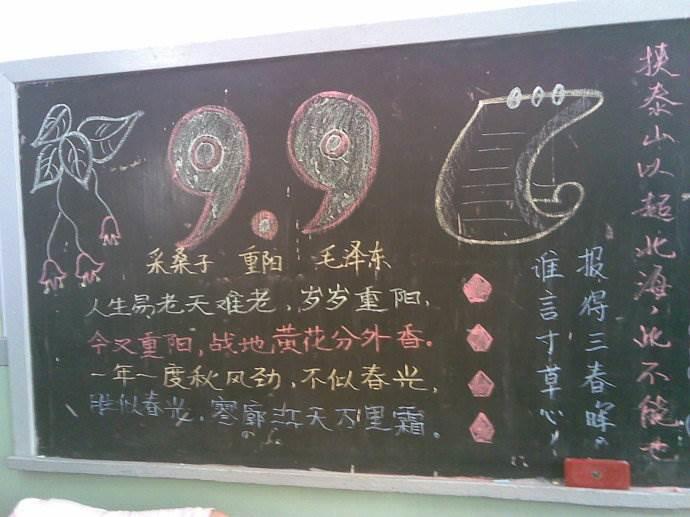 9.9
采桑子 重阳 毛泽东
人生易老天难老，岁岁重阳，
今又重阳，战地黄花分外香。
一年一度秋风劲，不似春光，
胜似春光，寥廓江天万里霜。
谁言寸草心！
报得三春晖。
挟泰山以超北海，此不能也